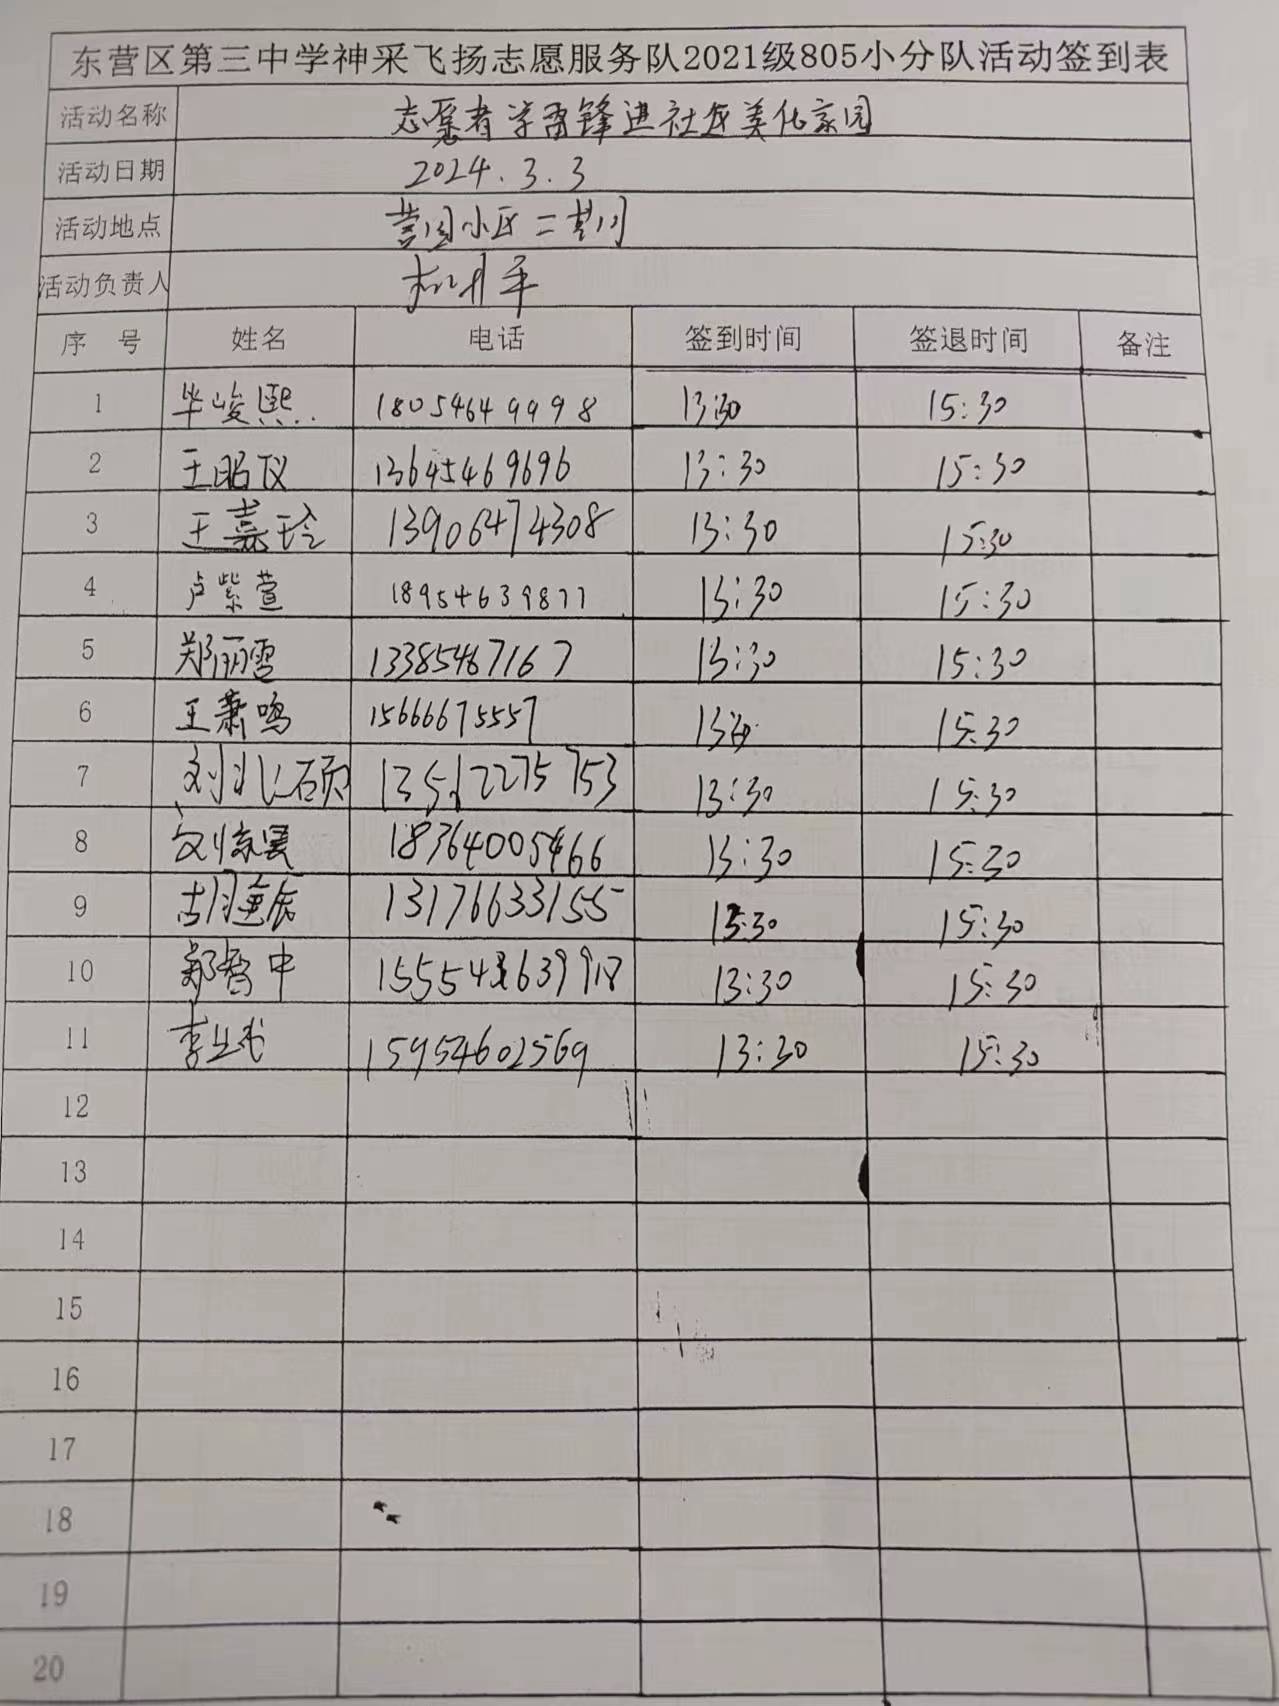 东营区第三中学神采飞扬志愿服务队2021级805小分队活动签到表
活动名称 志愿者学雷锋进社区美化家园
活动日期 2024.3.3
活动地点 小区二期
活动负责人
序 号 姓名 电话 签到时间 签退时间 备注
1 毕峻熙 18054649998 13:30 15:30
2 王昭仪 13645469696 13:30 15:30
3 王嘉玲 13906474308 13:30 15:30
4 卢紫萱 18954639877 13:30 15:30
5 郑丽雪 13385467167 13:30 15:30
6 王萧鸣 15666675557 13:30 15:30
7 刘兆硕 13512275753 13:30 15:30
8 18364005466 13:30 15:30
9 13176633155 13:30 15:30
10 郭哲中 13:30 15:30
11 15954602569 13:30 15:30
12
13
14
15
16
17
18
19
20